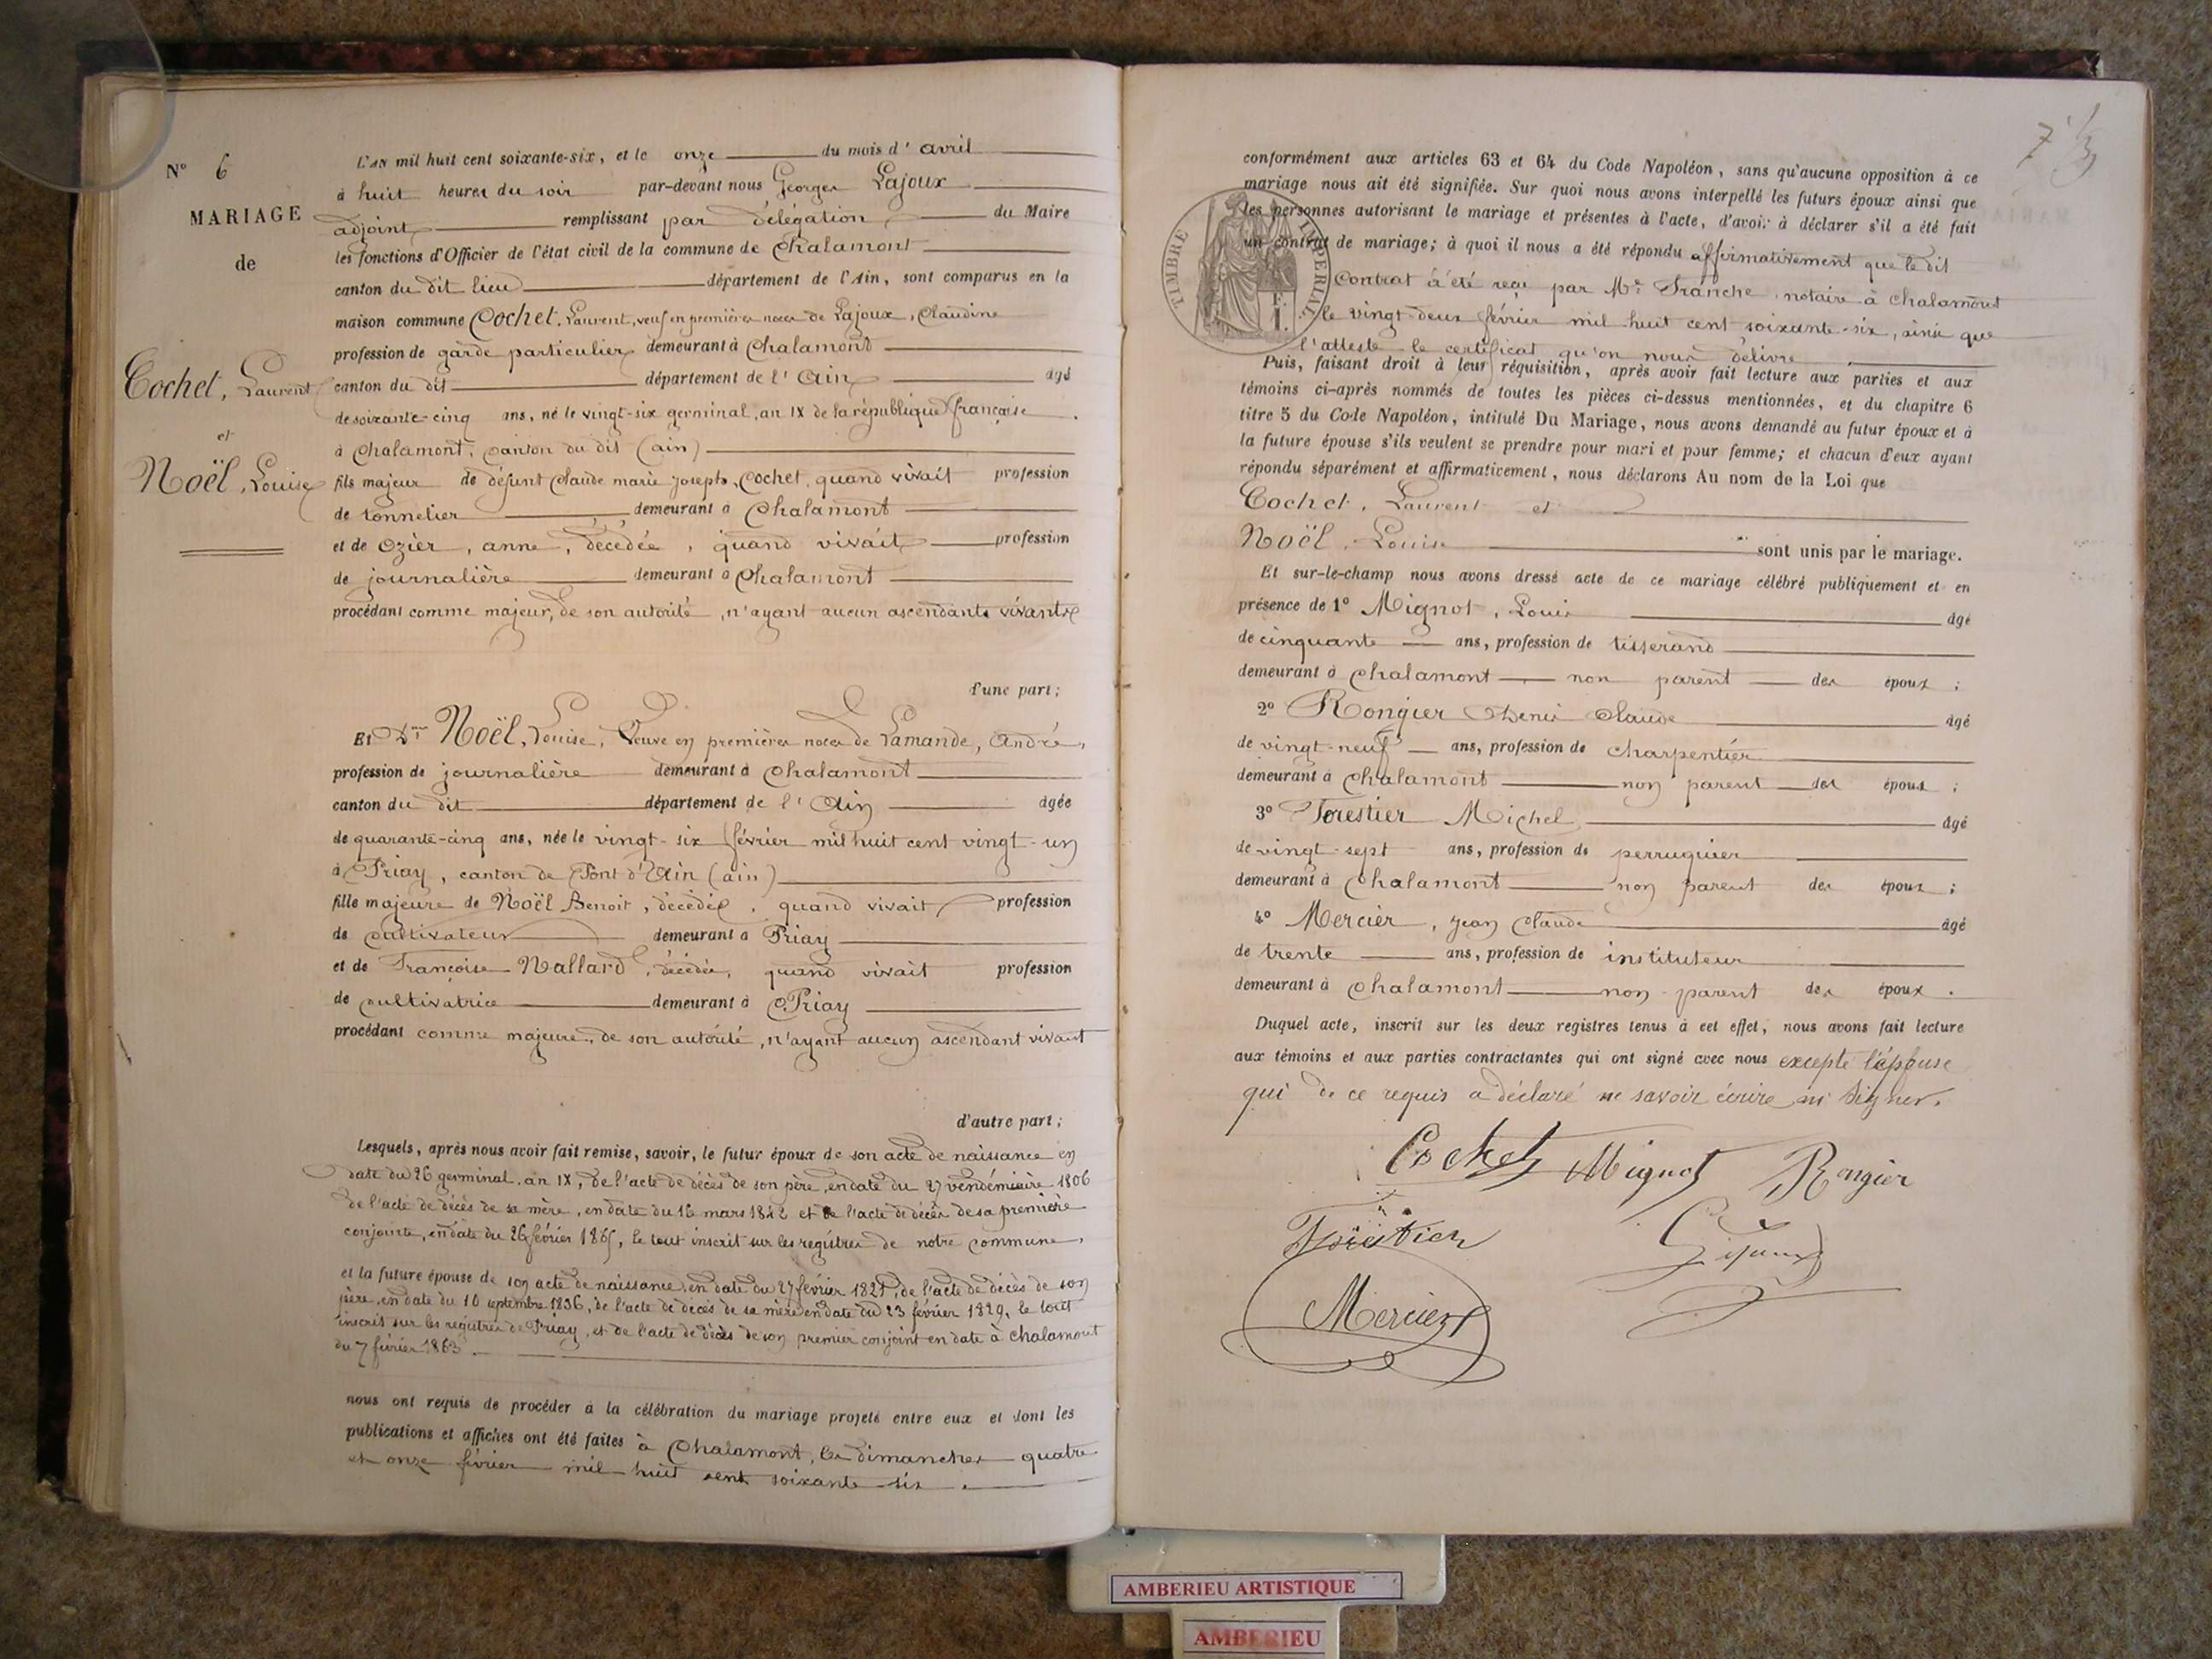 N° 6
MARIAGE
de
Cochet, Laurent
et
Noël, Louise
L'AN mil huit cent soixante-six, et le onze du mois d'avril
à huit heures du soir par-devant nous Georges Lajoux
adjoint remplissant par délégation du Maire
les fonctions d'Officier de l'état civil de la commune de Chalamont
canton du dit lieu département de l'Ain, sont comparus en la
maison commune Cochet, Laurent, veuf en premières noces de Lajoux, Claudine
profession de garde particulier demeurant à Chalamont
canton du dit département de l'Ain âgé
de soixante-cinq ans, né le vingt-six germinal, an IX de la république française
à Chalamont, canton du dit (ain)
fils majeur de défunt Claude marie joseph, Cochet, quand vivait profession
de tonnelier demeurant à Chalamont
et de Ozier, anne, décédée, quand vivait profession
de journalière demeurant à Chalamont
procédant comme majeur, de son autorité, n'ayant aucun ascendants vivants
d'une part ;
Et D.me Noël, Louise, Veuve en premières noces de Lamande, André,
profession de journalière demeurant à Chalamont
canton du dit département de l'Ain âgée
de quarante-cinq ans, née le vingt-six février mil huit cent vingt-un
à Priay, canton de Pont d'Ain (ain)
fille majeure de Noël Benoit, décédé, quand vivait profession
de cultivateur demeurant à Priay
et de Françoise Nallard, décédée, quand vivait profession
de cultivatrice demeurant à Priay
procédant comme majeure, de son autorité, n'ayant aucun ascendant vivant
d'autre part ;
Lesquels, après nous avoir fait remise, savoir, le futur époux de son acte de naissance en
date du 26 germinal, an IX, de l'acte de décès de son père, en date du 27 vendémiaire 1806
de l'acte de décès de sa mère, en date du 16 mars 1842 et de l'acte de décès de sa première
conjointe, en date du 26 février 1865, le tout inscrit sur les registres de notre commune,
et la future épouse de son acte de naissance, en date du 27 février 1821, de l'acte de décès de son
père, en date du 10 septembre 1836, de l'acte de décès de sa mère en date du 23 février 1829, le tout
inscrit sur les registres de Priay, et de l'acte de décès de son premier conjoint en date à Chalamont
du 7 février 1863.
nous ont requis de procéder à la célébration du mariage projeté entre eux et dont les
publications et affiches ont été faites à Chalamont, les dimanches quatre
et onze février mil huit cent soixante-six.
conformément aux articles 63 et 64 du Code Napoléon, sans qu'aucune opposition à ce
mariage nous ait été signifiée. Sur quoi nous avons interpellé les futurs époux ainsi que
les personnes autorisant le mariage et présentes à l'acte, d'avoir à déclarer s'il a été fait
un contrat de mariage; à quoi il nous a été répondu affirmativement que le dit
Contrat a été reçu par Me Franche notaire à Chalamont
le vingt-deux février mil huit cent soixante-six, ainsi que
l'atteste le certificat qu'on nous délivre
TIMBRE IMPERIAL
Puis, faisant droit à leur réquisition, après avoir fait lecture aux parties et aux
témoins ci-après nommés de toutes les pièces ci-dessus mentionnées, et du chapitre 6
titre 5 du Code Napoléon, intitulé Du Mariage, nous avons demandé au futur époux et à
la future épouse s'ils veulent se prendre pour mari et pour femme; et chacun d'eux ayant
répondu séparément et affirmativement, nous déclarons Au nom de la Loi que
Cochet, Laurent et
Noël, Louise sont unis par le mariage.
Et sur-le-champ nous avons dressé acte de ce mariage célébré publiquement et en
présence de 1° Mignot, Louis âgé
de cinquante ans, profession de tisserand
demeurant à Chalamont non parent des époux ;
2° Rongier Denis Claude âgé
de vingt-neuf ans, profession de charpentier
demeurant à Chalamont non parent des époux ;
3° Forestier Michel âgé
de vingt-sept ans, profession de perruquier
demeurant à Chalamont non parent des époux ;
4° Mercier, Jean Claude âgé
de trente ans, profession de instituteur
demeurant à Chalamont non parent des époux.
Duquel acte, inscrit sur les deux registres tenus à cet effet, nous avons fait lecture
aux témoins et aux parties contractantes qui ont signé avec nous excepté l'épouse
qui de ce requis a déclaré ne savoir écrire ni signer.
Cochet Mignot Rongier
Forestier
Lajoux
Mercier
AMBERIEU ARTISTIQUE
AMBERIEU